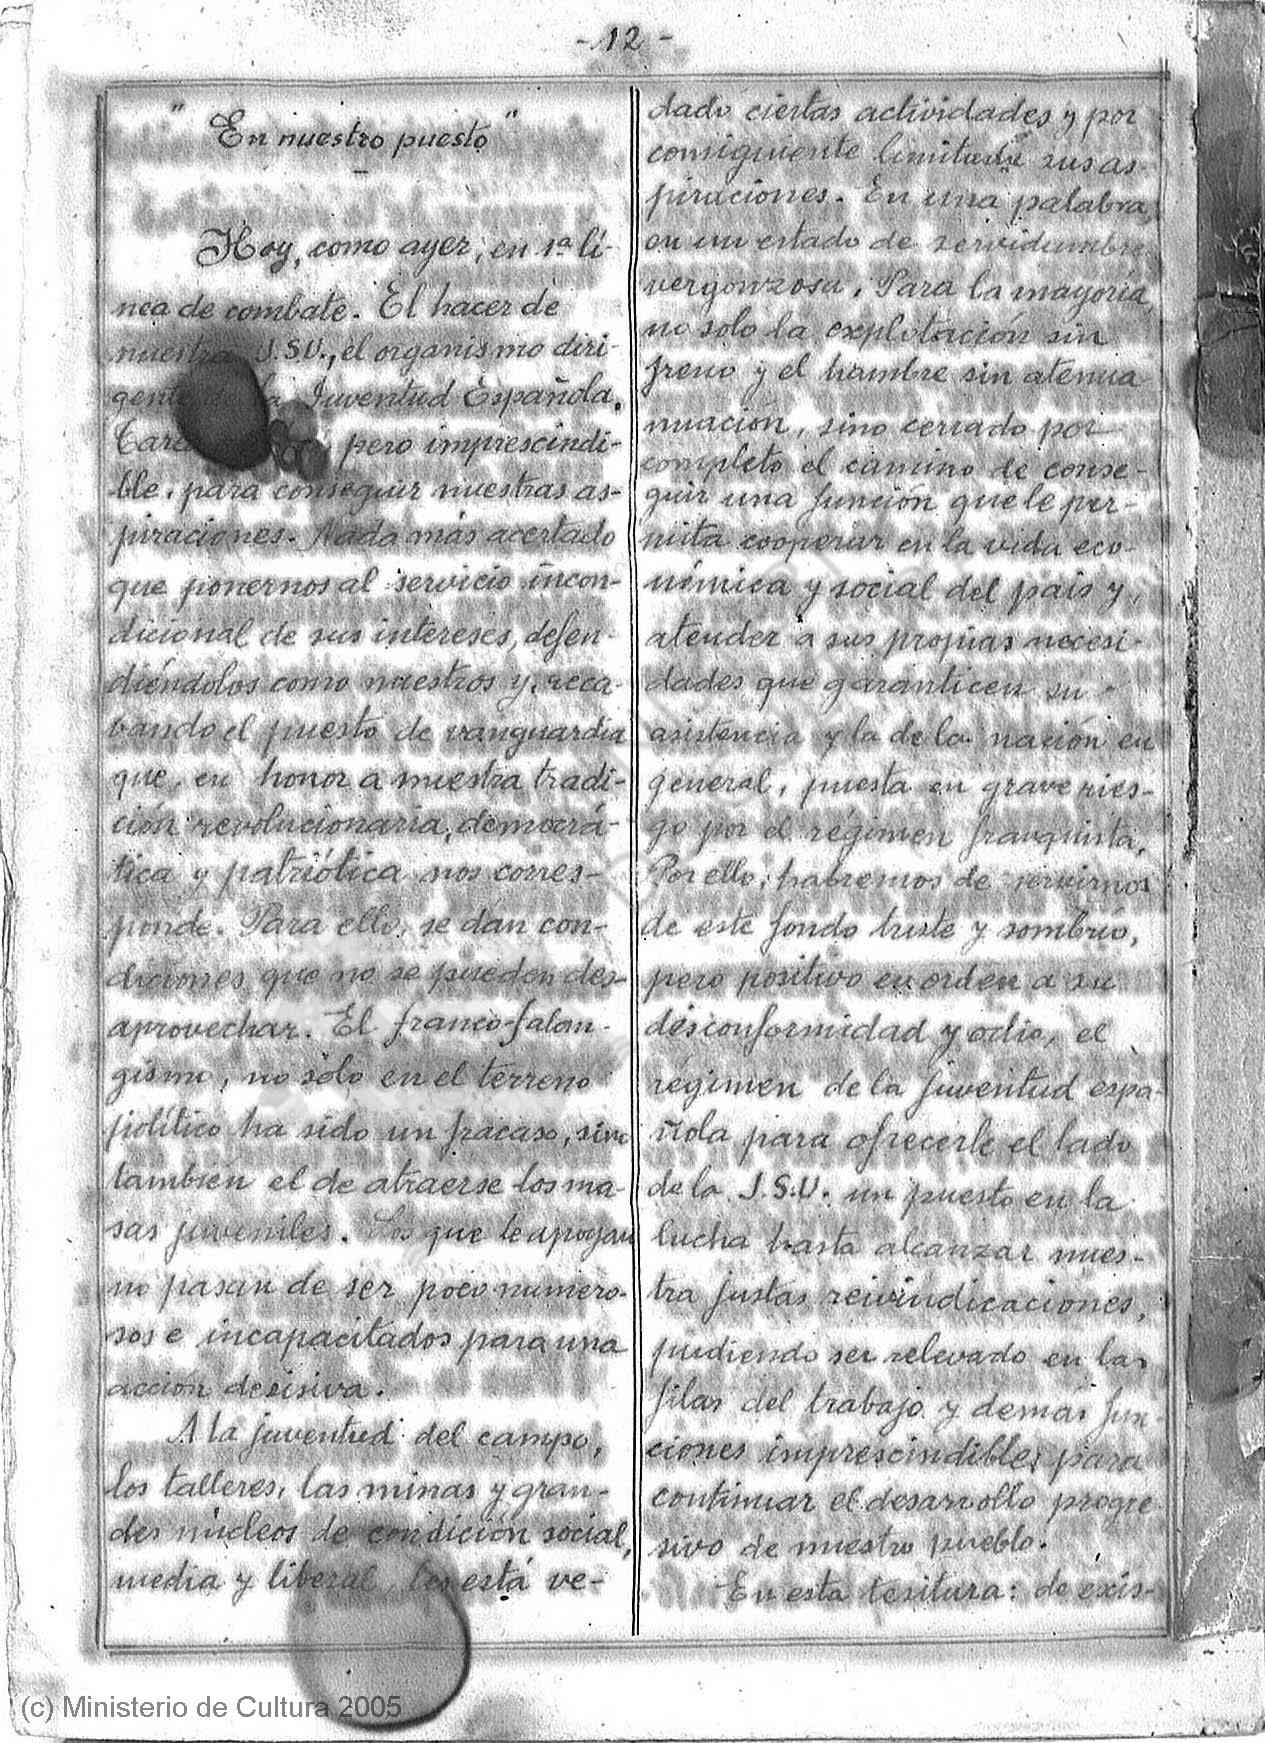 - 12 -
"En nuestro puesto"
Hoy, como ayer, en 1ª lí-
nea de combate. El hacer de
nuestra J.S.U., el organismo diri-
gente la Juventud Española,
pero imprescindi-
ble, para conseguir nuestras as-
piraciones. Nada más acertado
que ponernos al servicio incon-
dicional de sus intereses, defen-
diéndolos como nuestros y, reca-
bando el puesto de vanguardia
que, en honor a nuestra tradi-
ción revolucionaria, democrá-
tica y patriótica nos corres-
ponde. Para ello, se dan con-
diciones que no se pueden des-
aprovechar. El franco-falan-
gismo, no sólo en el terreno
político ha sido un fracaso, sino
también el de atraerse los ma-
sas juveniles. Los que le apoyan
no pasan de ser poco numero-
sos e incapacitados para una
acción desisiva.
A la juventud del campo,
los talleres, las minas y gran-
des núcleos de condición social,
media y liberal, les está ve-
dado ciertas actividades y por
consiguiente sus as-
piraciones. En una palabra,
en un estado de servidumbre
vergonzosa. Para la mayoría,
no solo la explotación sin
freno y el hambre sin atenua
nuación, sino cerrado por
completo el camino de conse-
guir una función que le per-
mita cooperar en la vida eco-
nómica y social del país y,
atender a sus propias necesi-
dades que garanticen su
asistencia y la de la nación en
general, puesta en grave ries-
go por el régimen franquista.
Por ello, habremos de servirnos
de este fondo triste y sombrío,
pero positivo en orden a su
desconformidad y odio, el
régimen de la juventud espa-
ñola para ofrecerle el lado
de la J.S.U. un puesto en la
lucha hasta alcanzar nues-
tra justas reivindicaciones,
pudiendo ser relevado en las
filas del trabajo y demás fun-
ciones imprescindibles para
continuar el desarrollo progre
sivo de nuestro pueblo.
En esta tesitura: de exis-
(c) Ministerio de Cultura 2005